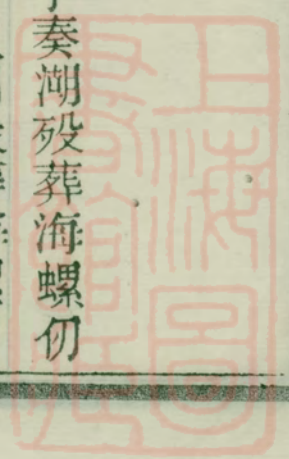 奏湖殁葬海螺仞
上海圖
書館藏